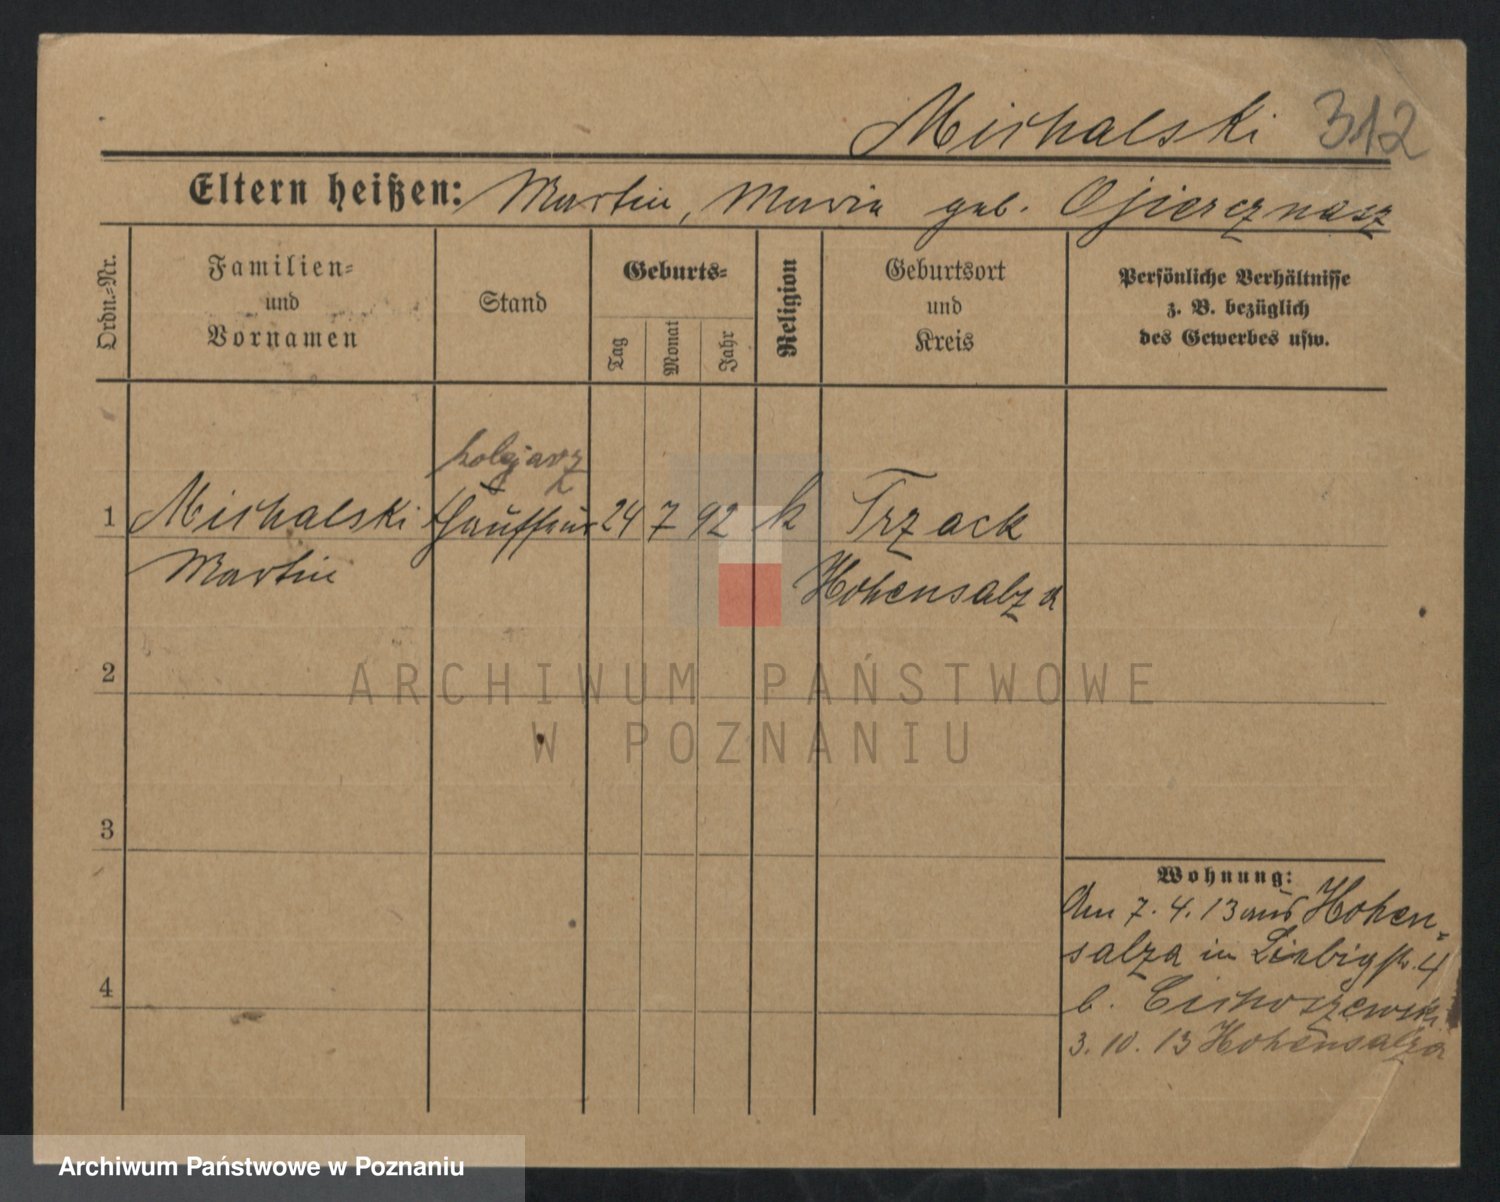 Michalski 312
Eltern heißen: Martin, Maria geb.
Ordn.-Nr.
Familien-
und
Vornamen
Stand
Geburts-
Tag
Monat
Jahr
Religion
Geburtsort
und
Kreis
Persönliche Verhältnisse
z. B. bezüglich
des Gewerbes usw.
1 Michalski 24 7 92 k Trzack
Martin Hohensalza
2
3
4
Wohnung:
Am 7. 4. 13 aus Hohen-
salza in Liebigstr. 4
b. Cichoszewski
3. 10. 13 Hohensalza
ARCHIWUM PAŃSTWOWE
W POZNANIU
Archiwum Państwowe w Poznaniu